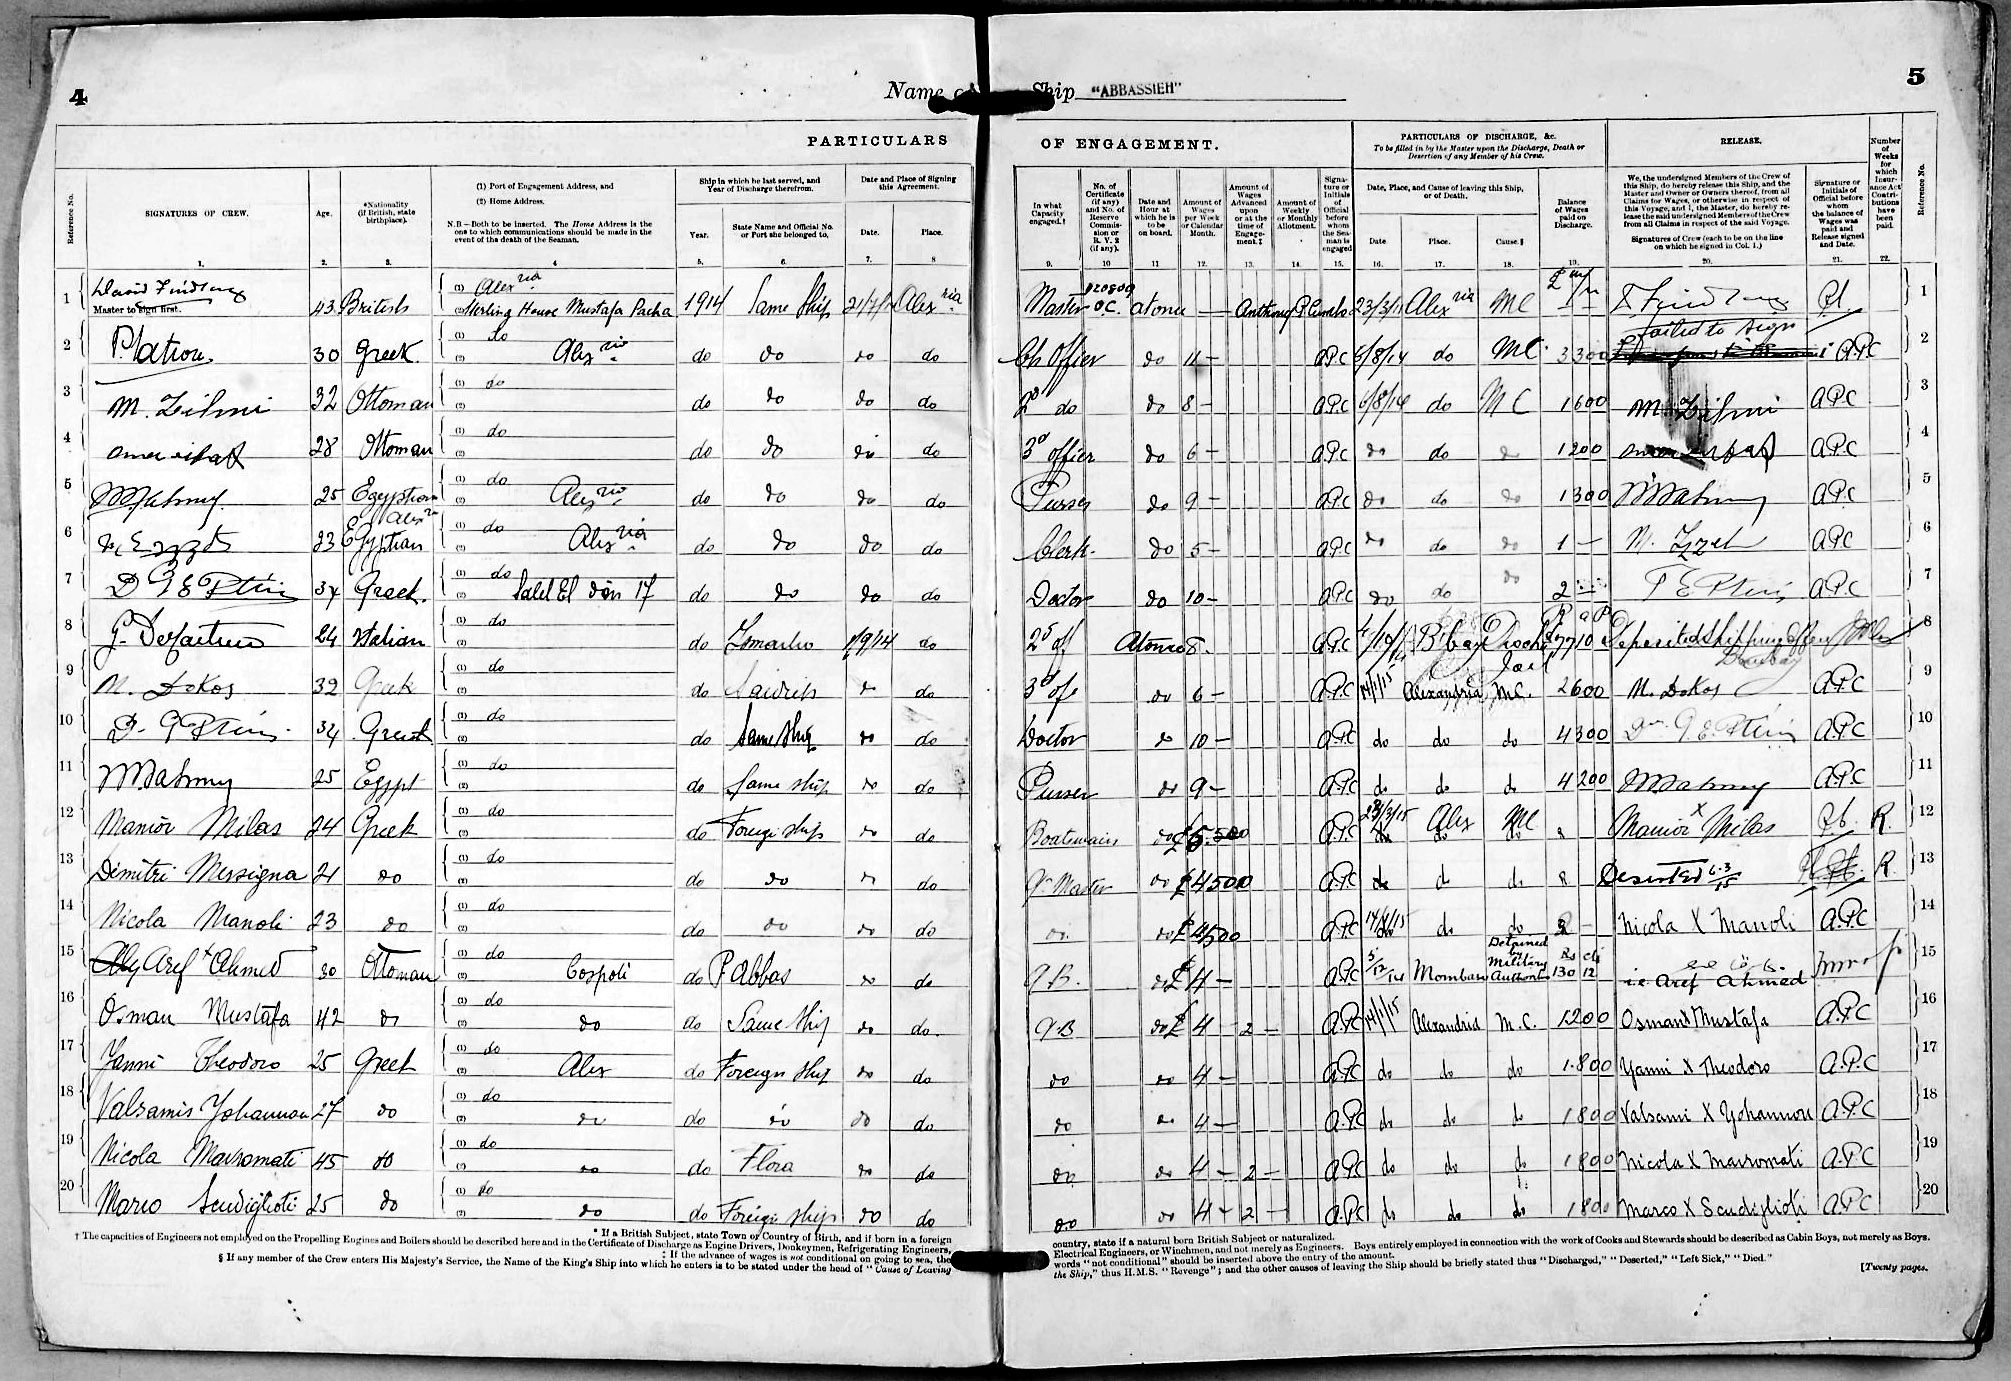 4
Name of Ship "ABBASSIEH"
5
PARTICULARS OF ENGAGEMENT.
PARTICULARS OF DISCHARGE, &c.
To be filled in by the Master upon the Discharge, Death or
Desertion of any Member of his Crew.
RELEASE.
Number of Weeks for which Insurance Act Contributions have been paid.
Reference No.
SIGNATURES OF CREW.
Age.
*Nationality (if British, state birthplace).
(1) Port of Engagement Address, and
(2) Home Address.
N.B.—Both to be inserted. The Home Address is the
one to which communications should be made in the
event of the death of the Seaman.
Ship in which he last served, and
Year of Discharge therefrom.
Year.
State Name and Official No.
or Port she belonged to.
Date and Place of Signing
this Agreement.
Date.
Place.
In what Capacity engaged.†
No. of Certificate (if any) and No. of Reserve Commission or R.V.2 (if any).
Date and Hour at which he is to be on board.
Amount of Wages per Week or Calendar Month.
Amount of Wages Advanced upon or at the time of Engagement.‡
Amount of Weekly or Monthly Allotment.
Signature or Initials of Official before whom the Seaman is engaged
Date, Place, and Cause of leaving this Ship,
or of Death.
Date
Place.
Cause.§
Balance of Wages paid on Discharge.
We, the undersigned Members of the Crew of
this Ship, do hereby release this Ship, and the
Master and Owner or Owners thereof, from all
Claims for Wages, or otherwise in respect of
this Voyage, and I, the Master, do hereby re-
lease the said undersigned Members of the Crew
from all Claims in respect of the said Voyage.
Signatures of Crew (each to be on the line
on which he signed in Col. 1.)
Signature or Initials of Official before whom the balance of Wages was paid and Release signed and Date.
Reference No.
1. 2. 3. 4 5. 6. 7. 8 9. 10 11 12. 13. 14. 15. 16. 17. 18. 19. 20. 21. 22.
1 David Findlay 43 British (1) Alexria 1914 Same Ship Alexria Master O.C. at once — Alexria MC — 1
Master to sign first. (2) Sterling House Mustafa Pacha
2 30 Greek (1) do (2) Alexria do do do do Ch Officer do 11 — A.P.C 6/8/14 do MC 3300 Failed to sign A.P.C 2
3 M. Zihni 32 Ottoman (1) do (2) do do do do 2d do do 8 — A.P.C 6/8/14 do MC 1600 M. Zihni A.P.C 3
4 28 Ottoman (1) do (2) do do do do 3d officer do 6 — A.P.C do do do 1200 A.P.C 4
5 25 Egyptian Alexria (1) do (2) Alexria do do do do Purser do 9 — A.P.C do do do 1300 A.P.C 5
6 23 Egyptian (1) do (2) Alexria do do do do Clerk. do 5 — A.P.C do do do 1 — M. Izzet A.P.C 6
7 34 Greek. (1) do (2) 17 do do do do Doctor do 10 — A.P.C do do do 2 A.P.C 7
8 24 Italian (1) do (2) do do Atonce 8. A.P.C Deposited Shipping Office Bombay 8
9 N. Dokos 32 Greek (1) do (2) do do do 3d of do 6 — A.P.C 14/1/15 Alexandria M.C. 2600 N. Dokos A.P.C 9
10 34 Greek (1) do (2) do Same Ship do do Doctor do 10 — A.P.C do do do 4300 A.P.C 10
11 25 Egypt (1) do (2) do Same Ship do do Purser do 9 — A.P.C do do do 4200 A.P.C 11
12 Manior Milas 24 Greek (1) do (2) do Foreign Ship do do Boatswain do £5.500 A.P.C 23/3/15 Alex MC Manior X Milas R. 12
13 Dimitri Messigna 21 do (1) do (2) do do do do Qr Master do £4500 A.P.C do do do Deserted 6.3/15 R. 13
14 Nicola Manoli 23 do (1) do (2) do do do do do do £4500 A.P.C 14/1/15 do do Nicola X Manoli A.P.C 14
15 Aly Aref X Ahmed 30 Ottoman (1) do (2) Cospoli do P. Abbas do do A.B. do £4 — A.P.C 5/12/14 Mombasa Detained by Military Authorities Rs cts 130 12 i.e Aref Ahmed 15
16 Osman Mustafa 42 do (1) do (2) do do Same Ship do do A.B do £4 — 2 — A.P.C 14/1/15 Alexandria M.C. 1200 Osman X Mustafa A.P.C 16
17 Yanni Theodoro 25 Greek (1) do (2) Alex do Foreign Ship do do do do 4 — A.P.C do do do 1.800 Yanni X Theodoro A.P.C 17
18 Valsamis Yohannou 27 do (1) do (2) do do do do do do do 4 — A.P.C do do do 1800 Valsami X Yohannou A.P.C 18
19 Nicola Mavromati 45 do (1) do (2) do do Flora do do do do 4 — 2 — A.P.C do do do 1800 Nicola X Mavromati A.P.C 19
20 Marco Scudiglioti 25 do (1) do (2) do do Foreign Ship do do do do 4 — 2 — A.P.C do do do 1800 Marco X Scudiglioti A.P.C 20
* If a British Subject, state Town or Country of Birth, and if born in a foreign country, state if a natural born British Subject or naturalized.
† The capacities of Engineers not employed on the Propelling Engines and Boilers should be described here and in the Certificate of Discharge as Engine Drivers, Donkeymen, Refrigerating Engineers, Electrical Engineers, or Winchmen, and not merely as Engineers. Boys entirely employed in connection with the work of Cooks and Stewards should be described as Cabin Boys, not merely as Boys.
‡ If the advance of wages is not conditional on going to sea, the words "not conditional" should be inserted above the entry of the amount.
§ If any member of the Crew enters His Majesty's Service, the Name of the King's Ship into which he enters is to be stated under the head of "Cause of Leaving the Ship," thus H.M.S. "Revenge"; and the other causes of leaving the Ship should be briefly stated thus "Discharged," "Deserted," "Left Sick," "Died."
[Twenty pages.